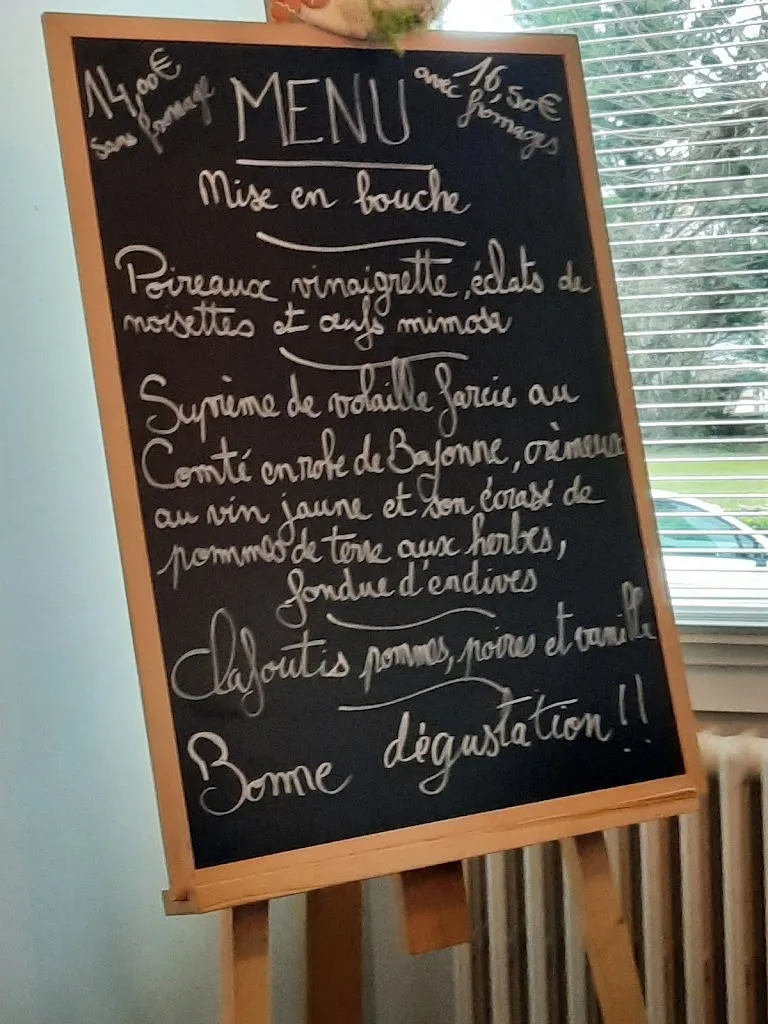 14,00€
sans fromage
MENU
avec 16,50€
fromages
Mise en bouche
Poireaux vinaigrette, éclats de
noisettes et œufs mimosa
Suprême de volaille farcie au
Comté en robe de Bayonne, crémeux
au vin jaune et son écrasé de
pommes de terre aux herbes,
fondue d'endives
Clafoutis pommes, poires et vanille
Bonne dégustation !!